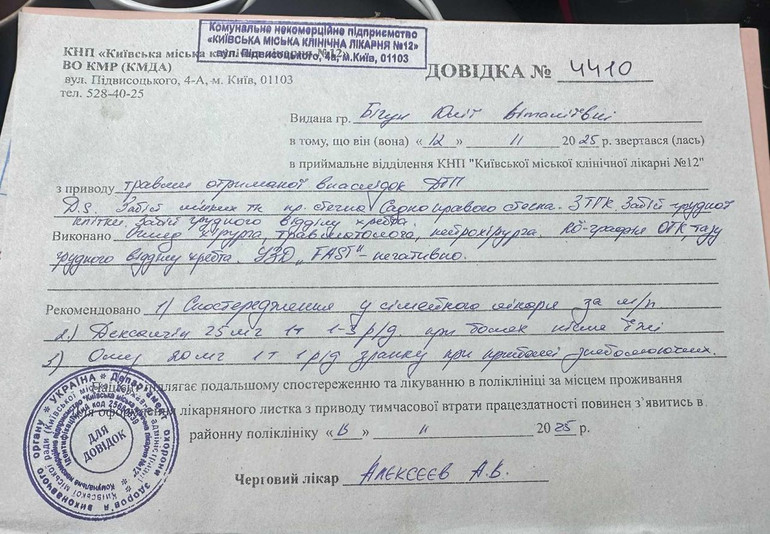 Комунальне некомерційне підприємство
«КИЇВСЬКА МІСЬКА КЛІНІЧНА ЛІКАРНЯ №12»
вул. Підвисоцького, 4а, м.Київ, 01103
КНП «Київська міська клінічна лікарня №12»
ВО КМР (КМДА)
вул. Підвисоцького, 4-А, м. Київ, 01103
тел. 528-40-25
ДОВІДКА № 4410
Видана гр. Бігун Юлії Віталіївні
в тому, що він (вона) «12» 11 2025 р. звертався (лась)
в приймальне відділення КНП "Київської міської клінічної лікарні №12"
з приводу травми отриманої внаслідок ДТП
D.S. Забій мяких тк. пр. стегна. Садно правого стегна. ЗТГК. Забій грудної
клітки, забій грудного відділу хребта.
Виконано Огляд хірурга, травматолога, нейрохірурга. Rö-графія ОГК, тазу
грудного відділу хребта. УЗД „FAST"- негативно.
Рекомендовано 1) Спостереження у сімейного лікаря за м/п
2.) Дексалгін 25мг 1т 1-3 р/д. при болях після їжі
3) Омез 20мг 1т 1р/д зранку при прийомі знеболюючих.
підлягає подальшому спостереженню та лікуванню в поліклініці за місцем проживання
оформлення лікарняного листка з приводу тимчасової втрати працездатності повинен з`явитись в
районну поліклініку «13» 11 2025 р.
Черговий лікар Алєксєєв А.В.
УКРАЇНА
ДЛЯ
ДОВІДОК